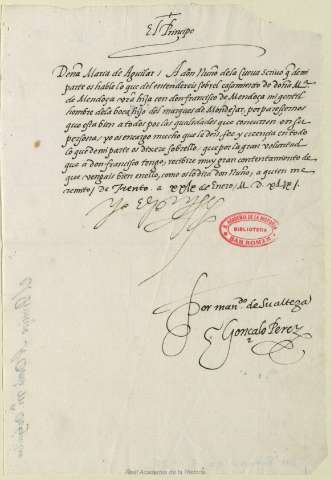 El Príncipe
Doña Maria de Aguilar: A don Nuño dela Cueua scriuo q̃ de mi
parte os hable lo que del entendereis sobrel casamiento de doña Mª
de Mendoça vr̃a hija con don francisco de Mendoça mi gentil
hombre dela boca hijo del marques de Mondejar, por parescernos
que esta bien a todos por las qualidades que concurren en su
persona; yo os encargo mucho que le deis, fee y creencia en todo
lo que de mi parte os dixere sobrello: que por la gran voluntad
que a don francisco tengo, recibire muy gran contentamiento de
que vengais bien enello, como os lo dira don Nuño, a quien me
remito; de Trento. a de Enero, M. D.
Yo El Principe
R. ACADEMIA DE LA HISTORIA
BIBLIOTECA
SAN ROMAN
Por manᵈᵒ. de Su alteza
Gonçalo Perez
Real Academia de la Historia